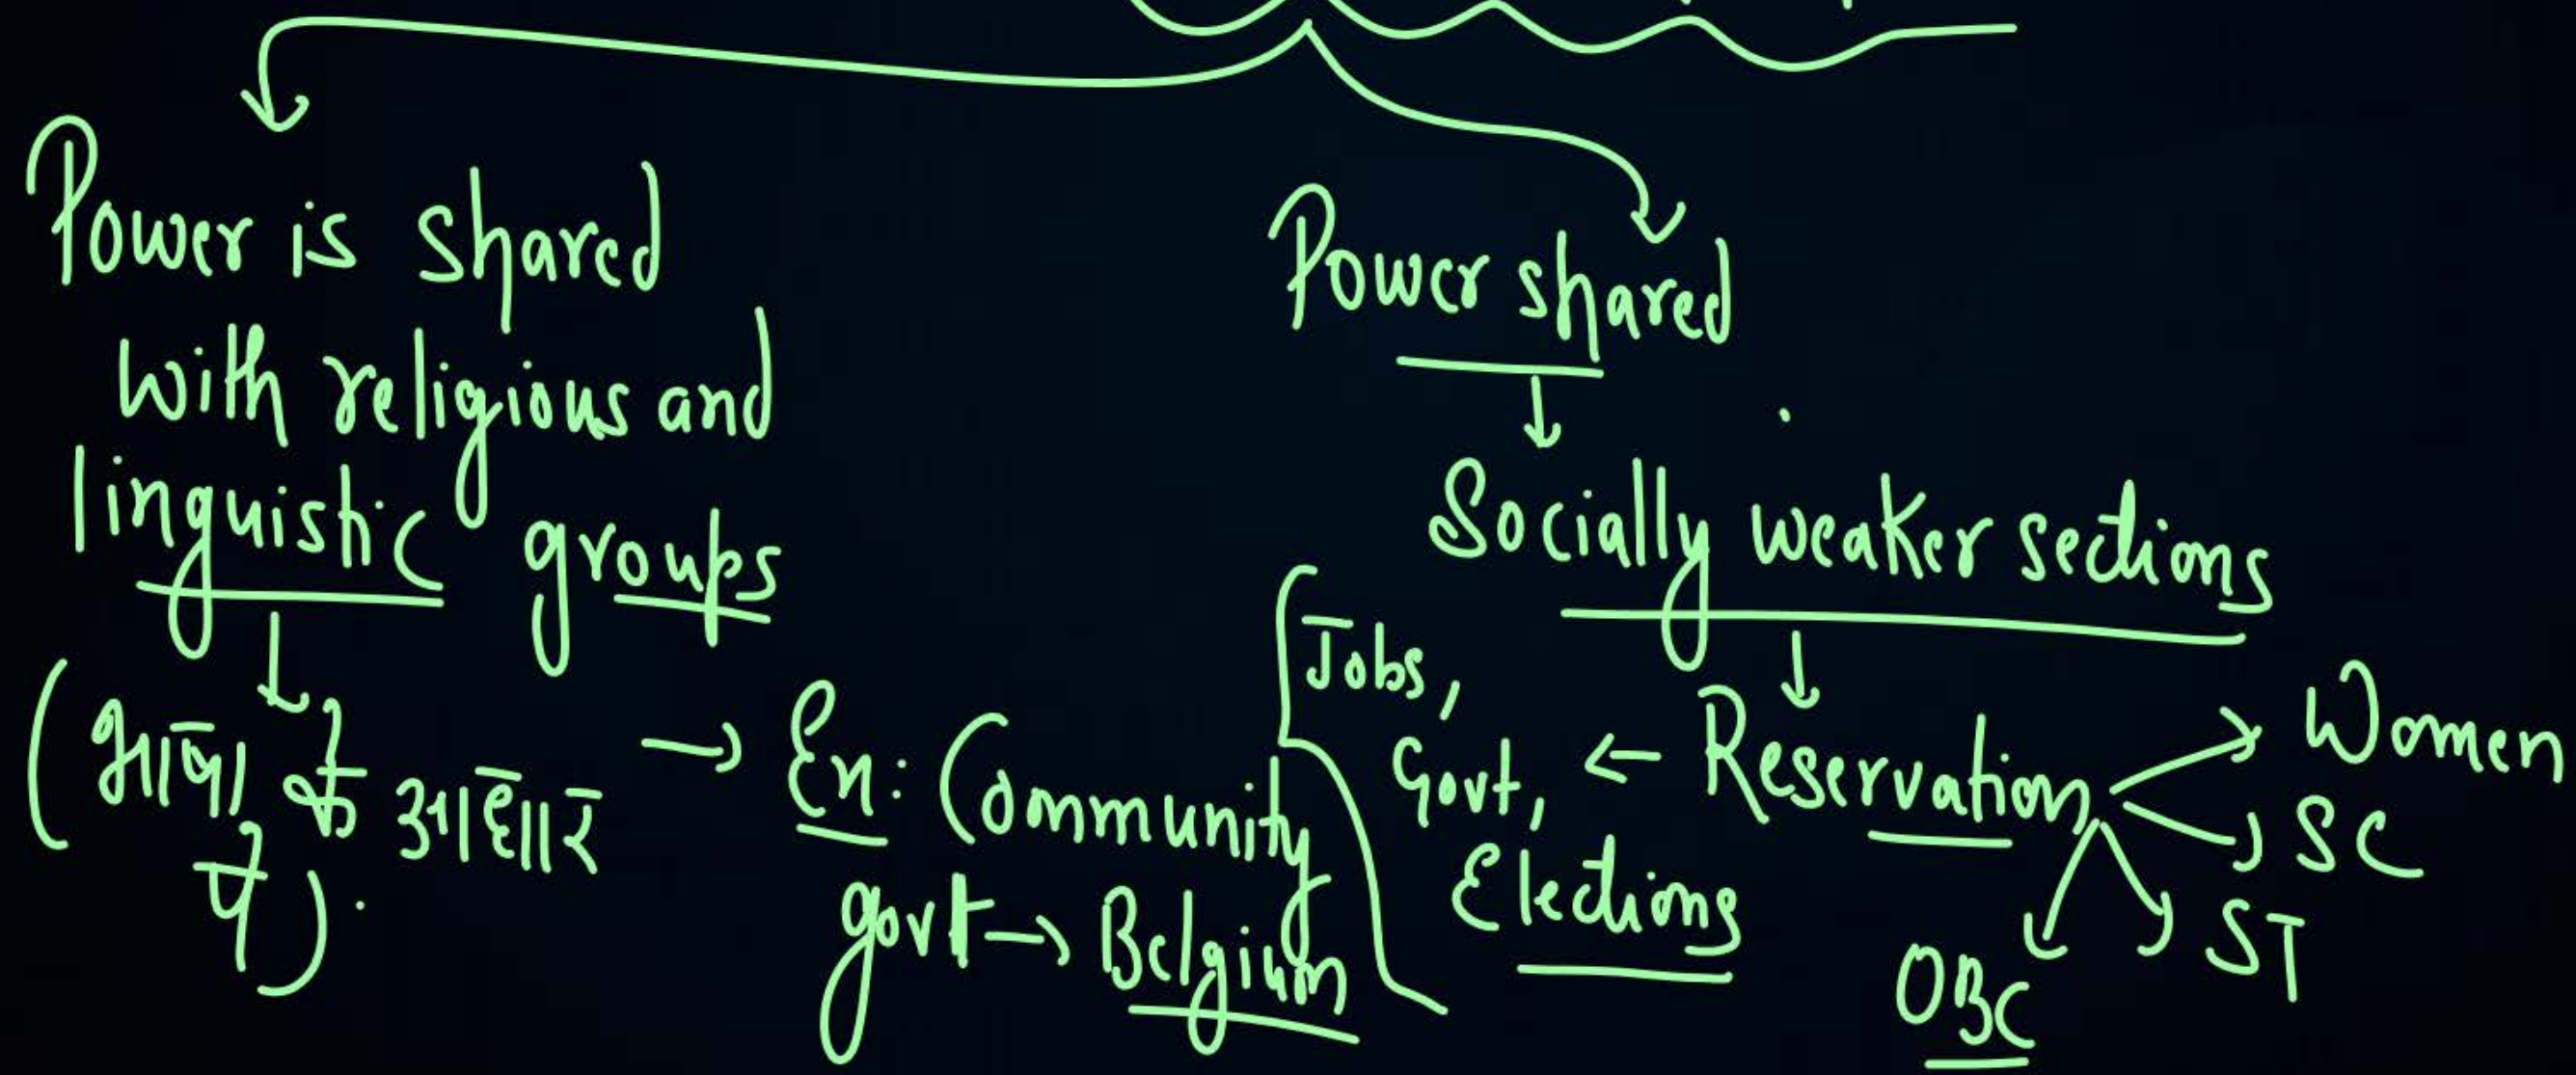 Power is shared
with religious and
linguistic groups
(भाषा के आधार
पे).
→ Ex: Community
govt → Belgium
Power shared
↓
Socially weaker sections
↓
Jobs,
Govt, ← Reservation
Elections
Women
SC
ST
OBC